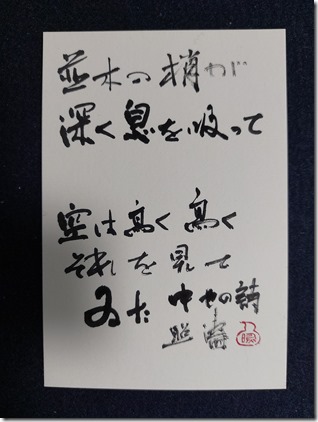 並木の梢が
深く息を吸って
空は高く高く
それを見て
ゐた 中也の詩